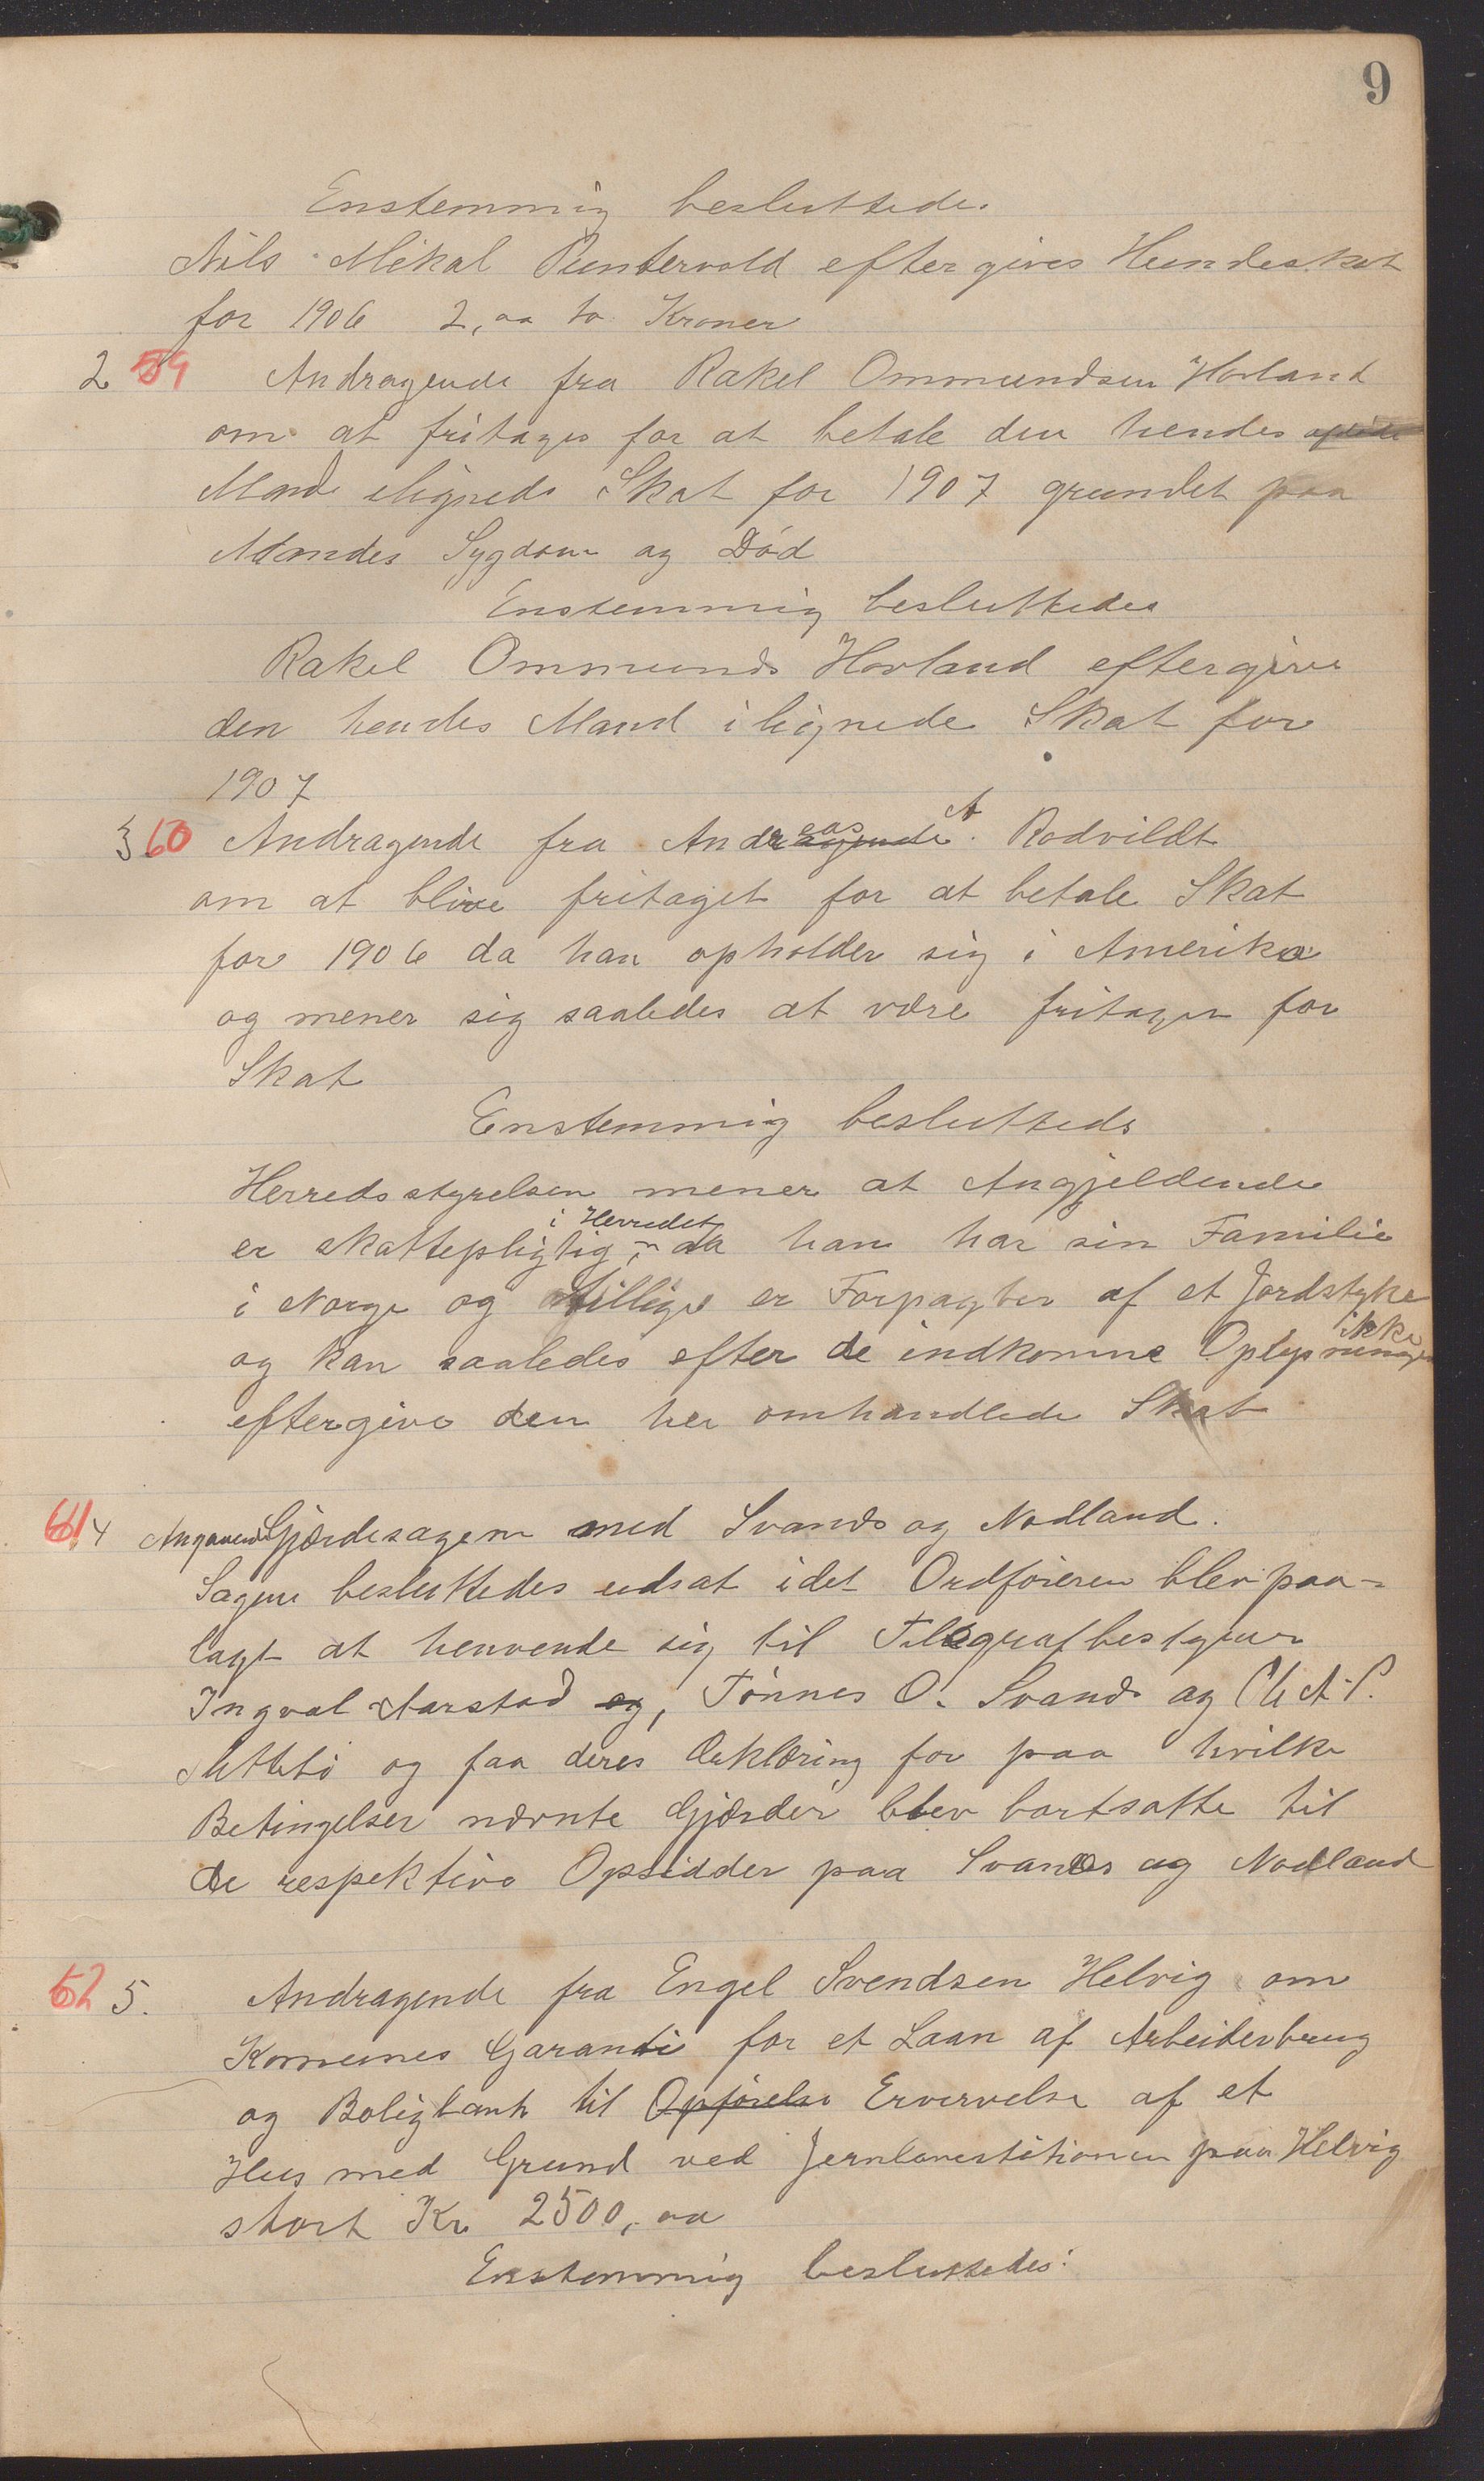 9
Enstemmig besluttedes
Nils Mikal Puntervold eftergives Hundeskat
for 1906 2,00 to Kroner
2 59 Andragende fra Rakel Ommundsen Hovland
om at fritages for at betale den hendes
Mand ilignede Skat for 1907 grundet paa
Mandes Sygdom og Død
Enstemmig besluttedes
Rakel Ommunds Hovland eftergives
den hendes Mand ilignede Skat for
1907
3 60 Andragende fra Andreas A. Rodvildt
om at blive fritaget for at betale Skat
for 1906 da han opholder sig i Amerika
og mener sig saaledes at være fritagen for
Skat
Enstemmig besluttedes
Herredsstyrelsen mener at Angjeldende
er skattepligtig i Herredet, da han har sin Familie
i Norge og tillige er Forpagter af et Jordstyke
og kan saaledes efter de indkomne Oplysninger ikke
eftergive den her omhandlede Skat
61 4 Angaaende Gjærdesagen med Svanes og Nodland.
Sagen besluttedes udsat idet Ordføreren blev paa-
lagt at henvende sig til Telegrafbestyrer
Ingval Aarstad og, Tønnes O. Svanes og
og faa deres Erklæring for paa hvilke
Betingelser nævnte Gjærder blev bortsatte til
de respektive Opsidder paa Svanes og Nodland
62 5. Andragende fra Engel Svendsen Helvig om
Komunes Garanti for et Laan af Arbeiderbrug
og Boligbank til Opførelse Ervervelse af et
Hus med Grund ved Jernbanestationen paa Helvig
stort Kr 2500,00
Enstemmig besluttedes: